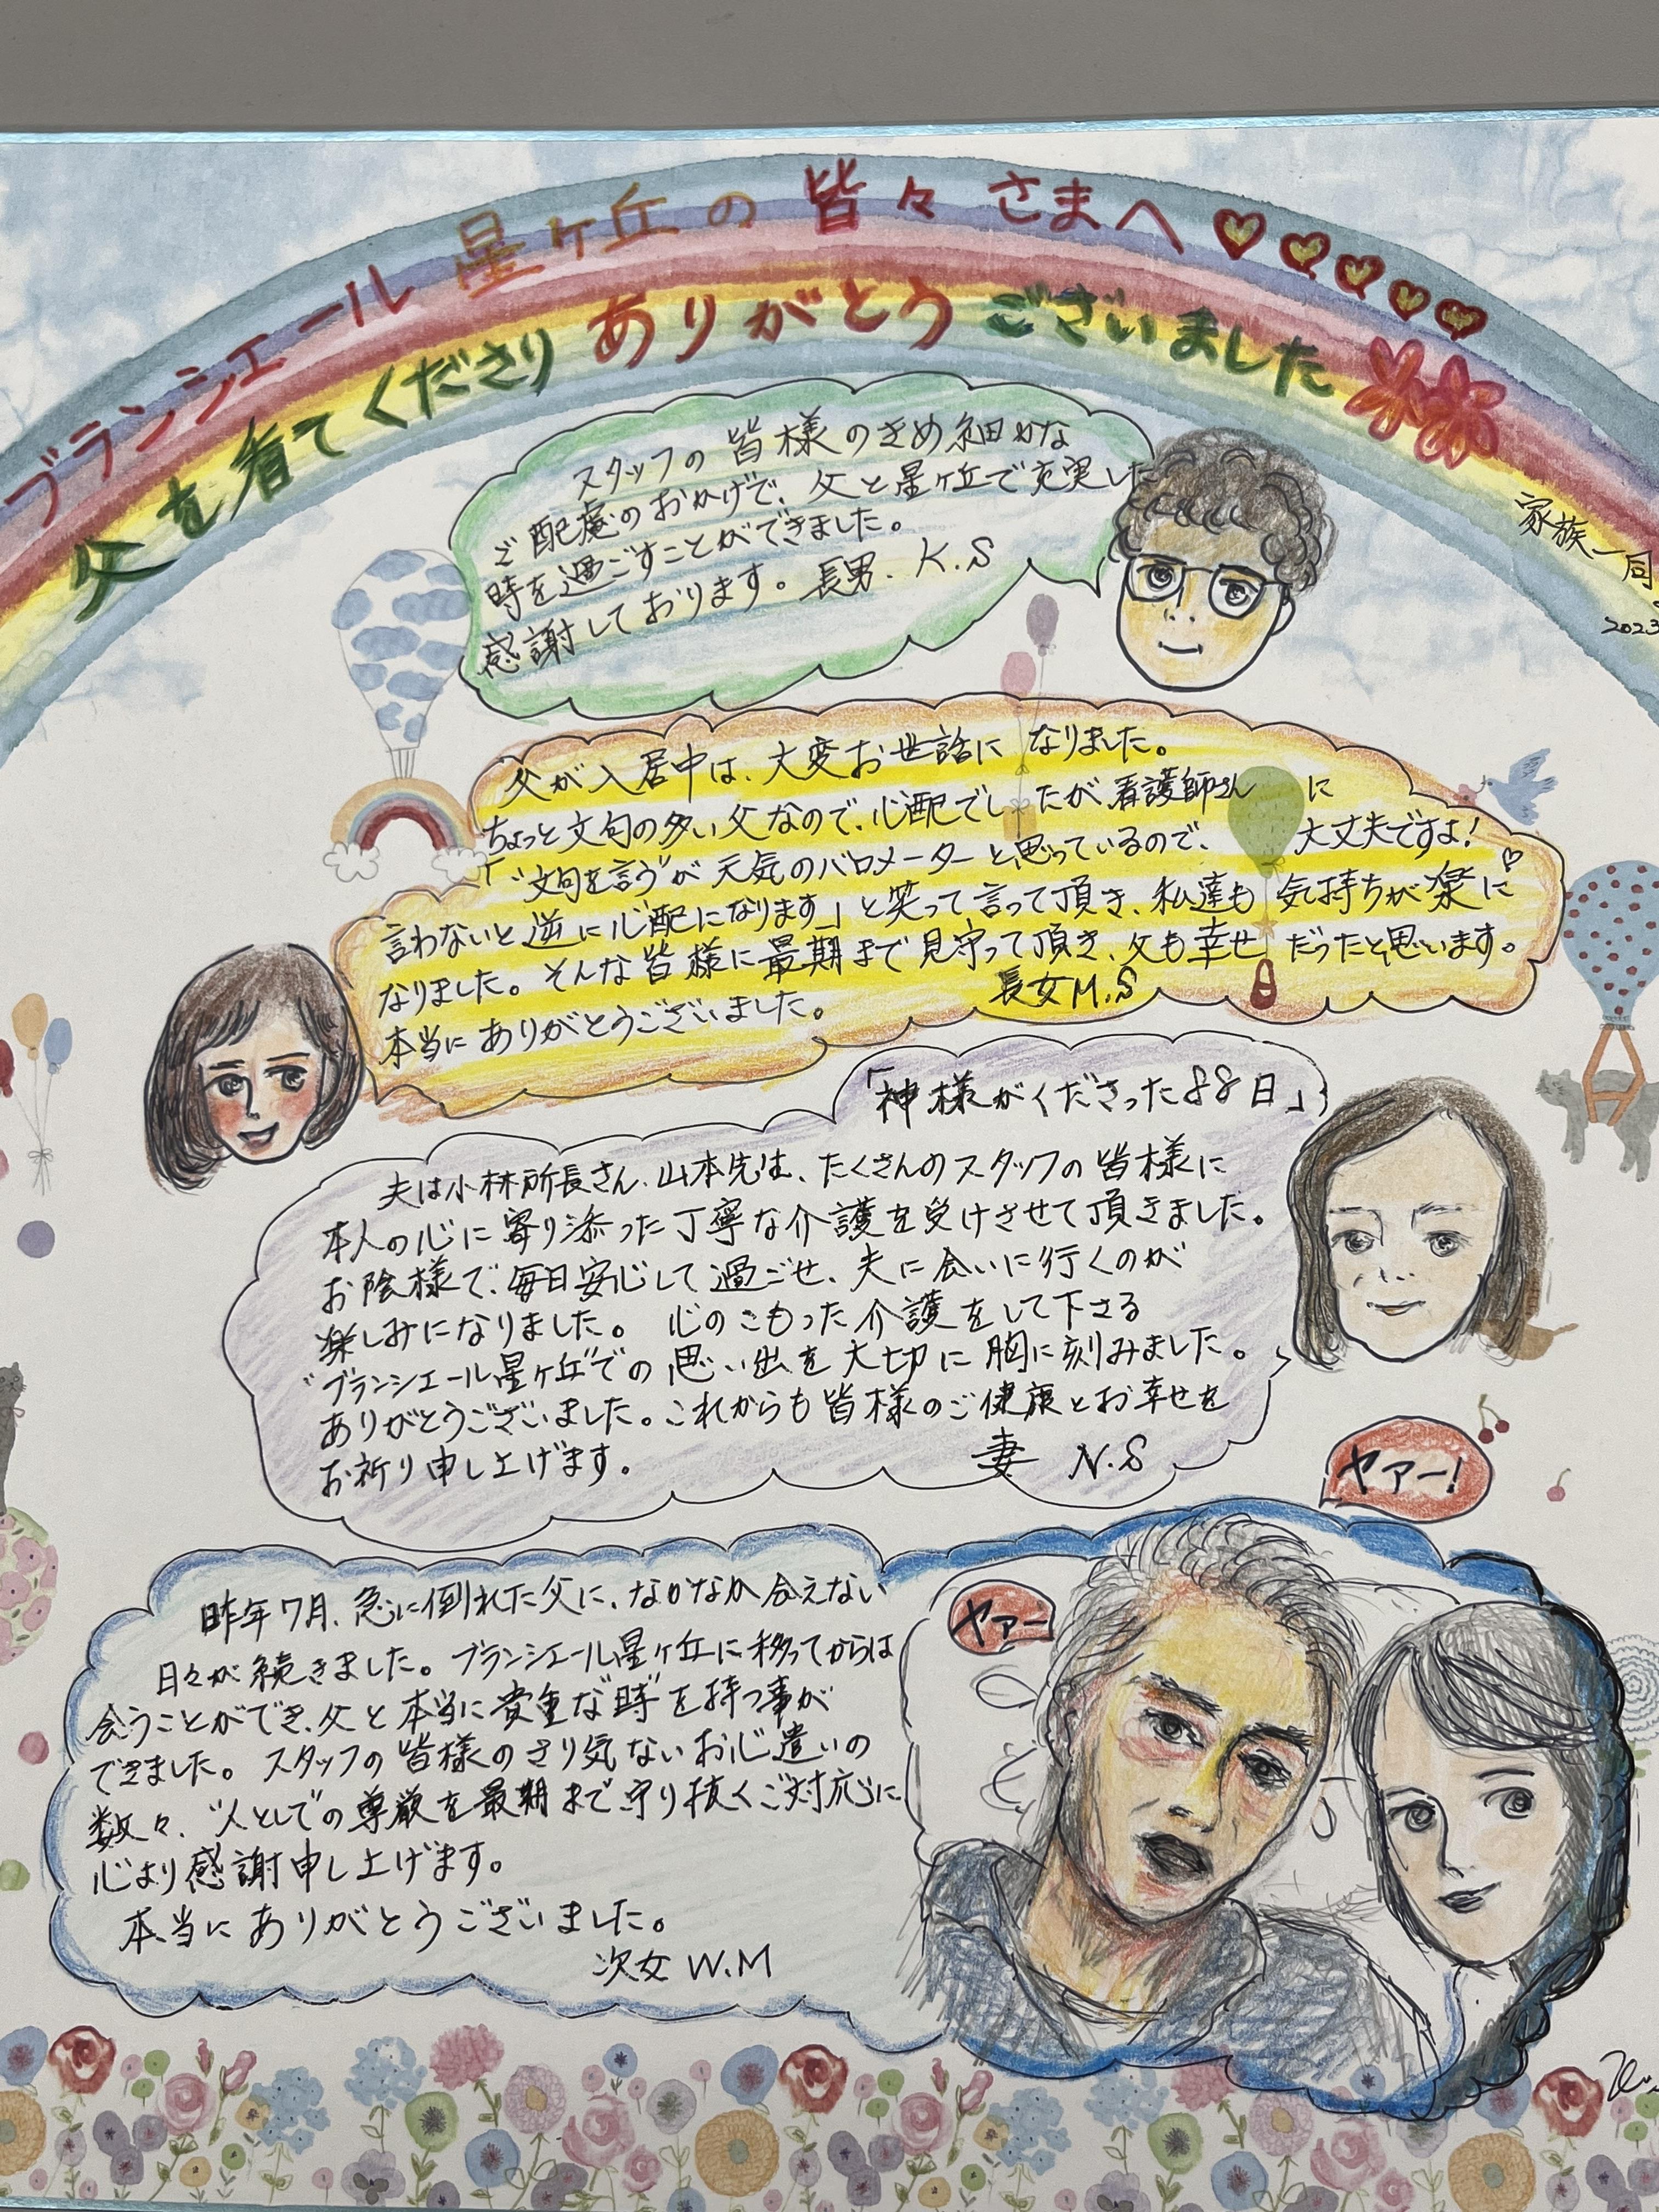 ブランシエール星ヶ丘の皆々さまへ
父を看てくださりありがとうございました
家族一同
2023
スタッフの皆様のきめ細かな
ご配慮のおかげで、父と星ヶ丘で充実した
時を過ごすことができました。
感謝しております。長男.K.S
父が入居中は、大変お世話になりました。
ちょっと文句の多い父なので、心配でしたが、看護師さんに
「"文句を言う"が天気のバロメーターと思っているので、大丈夫ですよ!
言わないと逆に心配になります」と笑って言って頂き、私達も気持ちが楽に
なりました。そんな皆様に最期まで見守って頂き、父も幸せだったと思います。
本当にありがとうございました。
長女M.S
「神様がくださった88日」
夫は小林所長さん、山本先生、たくさんのスタッフの皆様に
本人の心に寄り添った丁寧な介護を受けさせて頂きました。
お陰様で、毎日安心して過ごせ、夫に会いに行くのが
楽しみになりました。心のこもった介護をして下さる
"ブランシエール星ヶ丘"での思い出を大切に胸に刻みました。
ありがとうございました。これからも皆様のご健康とお幸せを
お祈り申し上げます。
妻 N.S
ヤァー!
ヤァー
昨年7月、急に倒れた父に、なかなか会えない
日々が続きました。ブランシエール星ヶ丘に移ってからは
会うことができ、父と本当に貴重な"時"を持つ事が
できました。スタッフの皆様のさり気ないお心遣いの
数々、"人としての尊厳を最期まで守り抜くご対応に
心より感謝申し上げます。
本当にありがとうございました。
次女 W.M